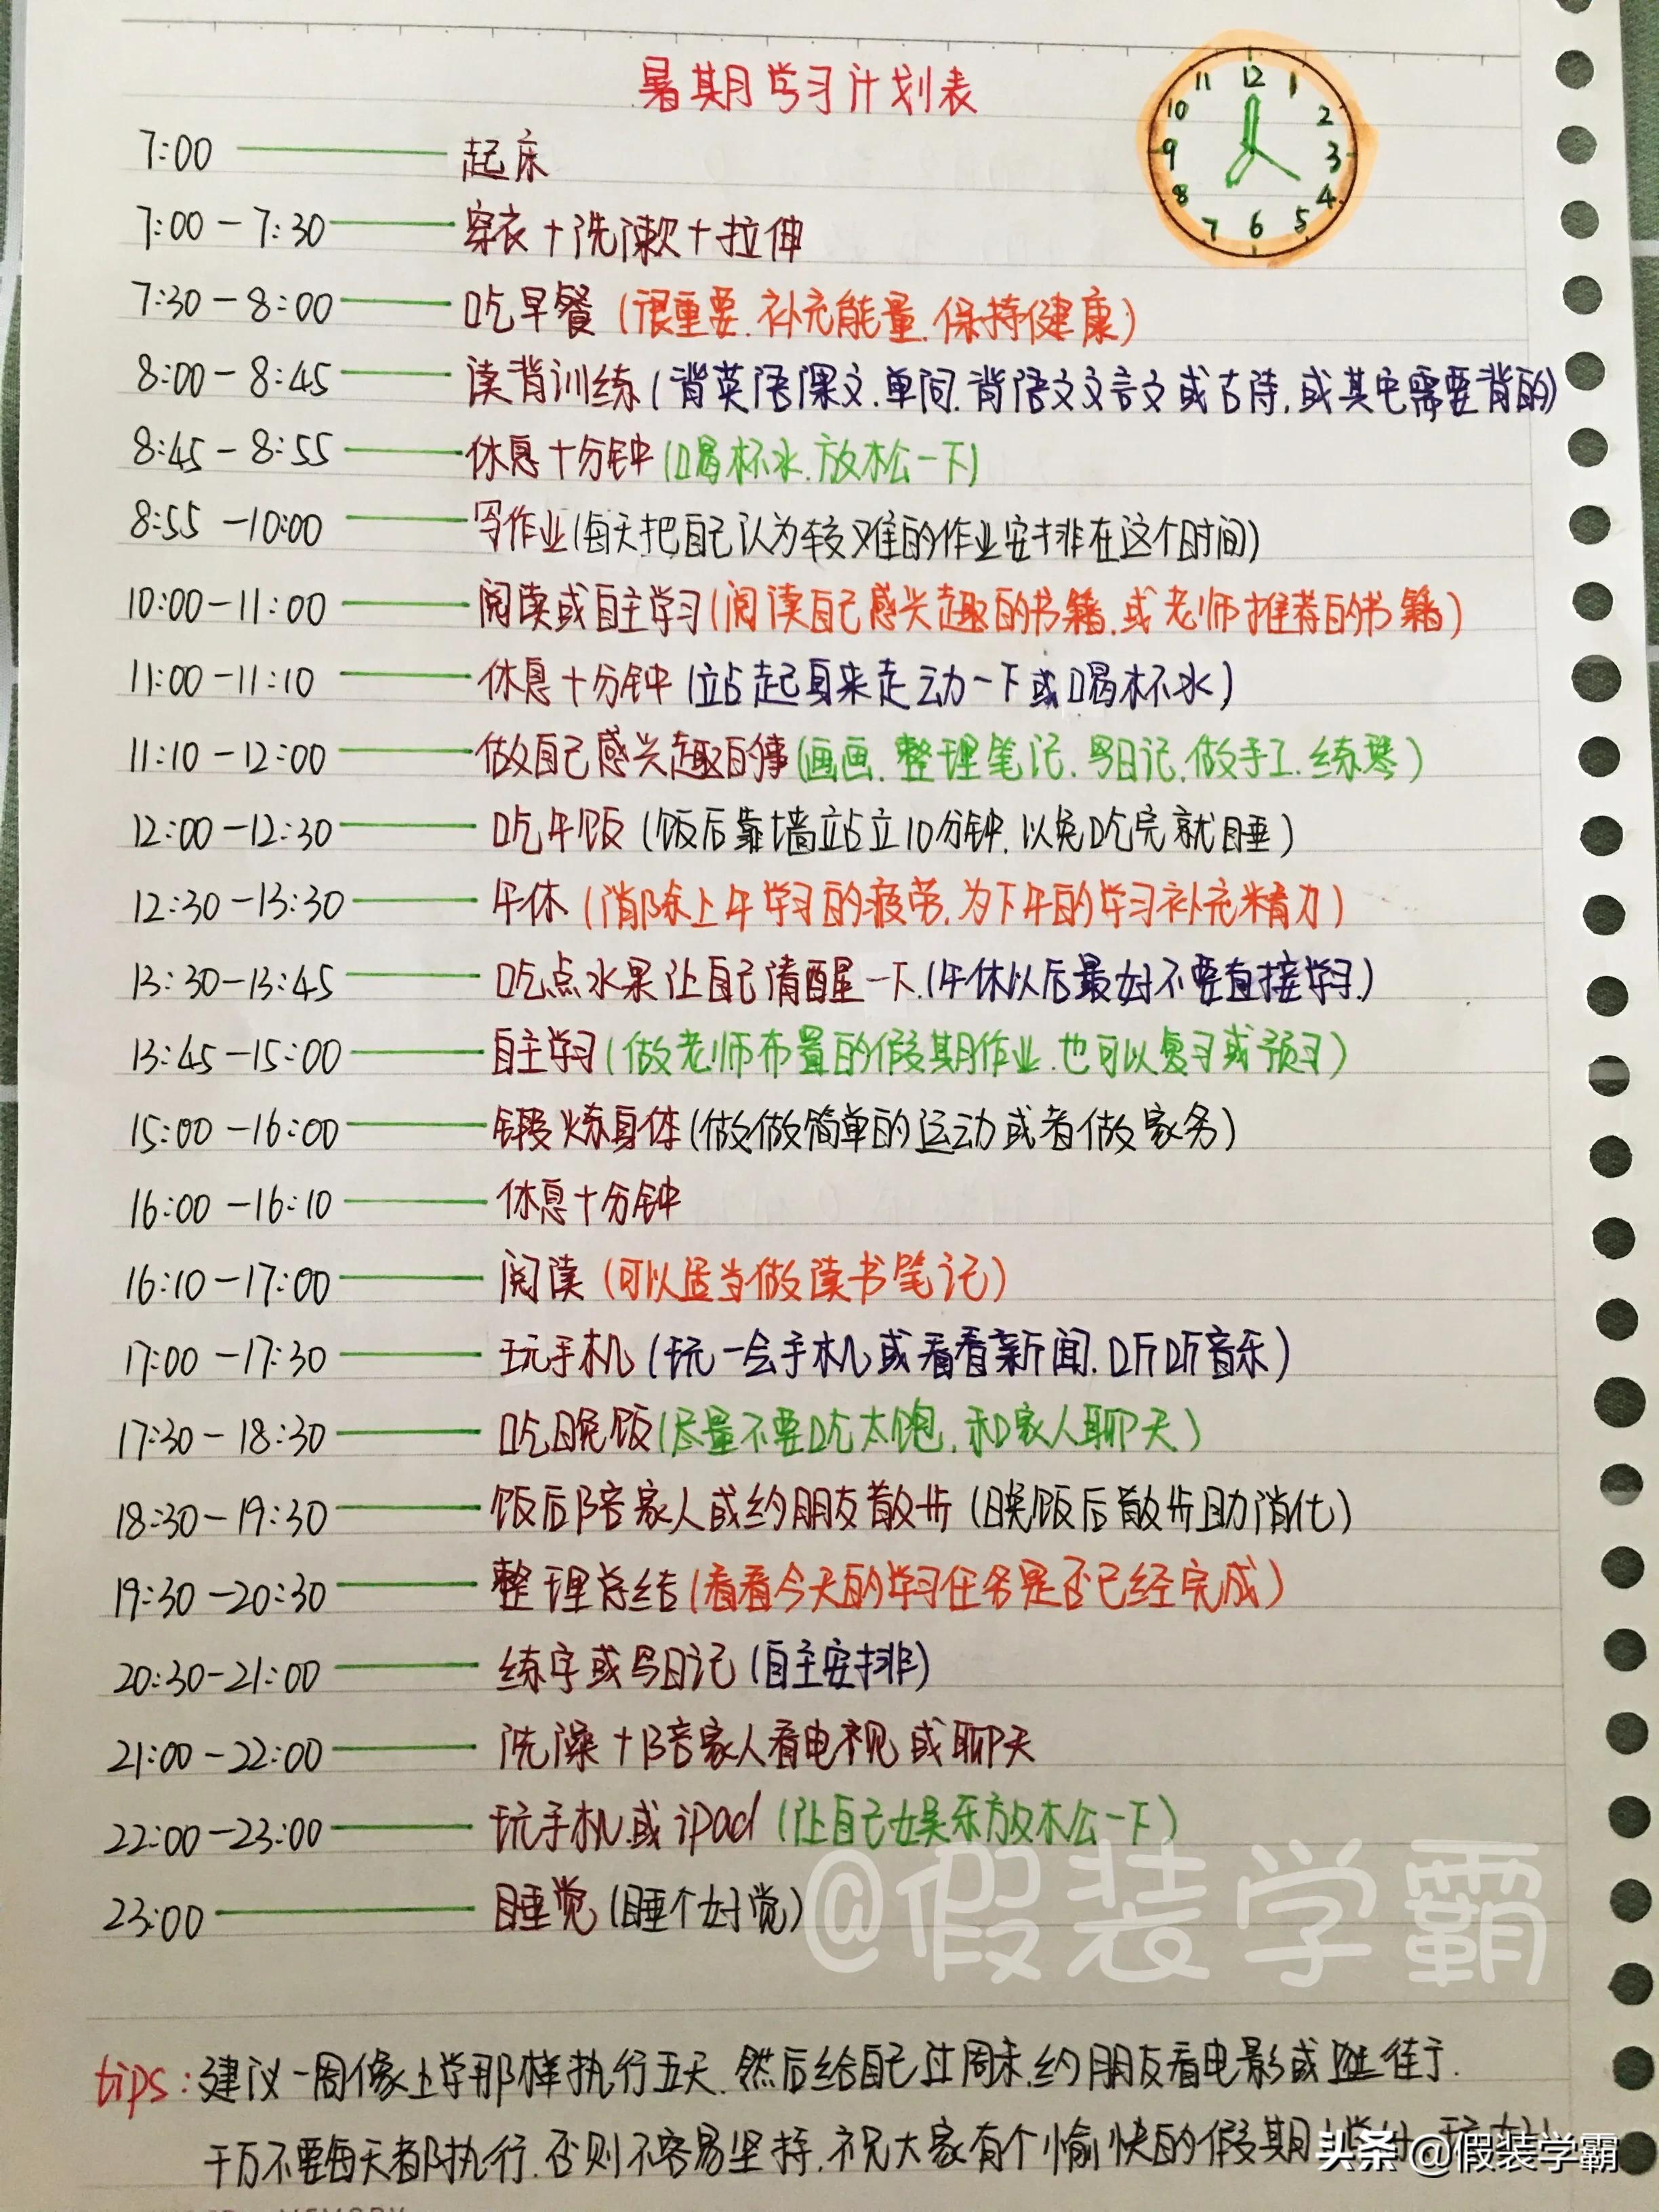 暑期学习计划表
12
11
1
10
2
9
3
8
4
7
6
5
7:00 起床
7:00-7:30 穿衣+洗漱+拉伸
7:30-8:00 吃早餐(很重要.补充能量.保持健康)
8:00-8:45 读背训练(背英语课文.单词.背语文文言文或古诗,或其它需要背的)
8:45-8:55 休息十分钟(喝杯水.放松一下)
8:55-10:00 写作业(每天把自己认为较难的作业安排在这个时间)
10:00-11:00 阅读或自主学习(阅读自己感兴趣的书籍.或老师推荐的书籍)
11:00-11:10 休息十分钟(站起身来走动一下或喝杯水)
11:10-12:00 做自己感兴趣的事(画画.整理笔记.写日记.做手工.练琴)
12:00-12:30 吃午饭(饭后靠墙站立10分钟.以免吃完就睡)
12:30-13:30 午休(消除上午学习的疲劳,为下午的学习补充精力)
13:30-13:45 吃点水果让自己清醒一下.(午休以后最好不要直接学习.)
13:45-15:00 自主学习(做老师布置的假期作业.也可以复习或预习)
15:00-16:00 锻炼身体(做做简单的运动或者做家务)
16:00-16:10 休息十分钟
16:10-17:00 阅读(可以适当做读书笔记)
17:00-17:30 玩手机(玩一会手机或看看新闻.听听音乐)
17:30-18:30 吃晚饭(尽量不要吃太饱,和家人聊天)
18:30-19:30 饭后陪家人或约朋友散步(晚饭后散步助消化)
19:30-20:30 整理总结(看看今天的学习任务是否已经完成)
20:30-21:00 练字或写日记(自主安排)
21:00-22:00 洗澡+陪家人看电视或聊天
22:00-23:00 玩手机.或ipad(让自己娱乐放松一下)
23:00 睡觉(睡个好觉)
@假装学霸
tips:建议一周像上学那样执行五天.然后给自己过周末,约朋友看电影或逛街.
千万不要每天都执行.否则不容易坚持.祝大家有个愉快的假期
头条@假装学霸